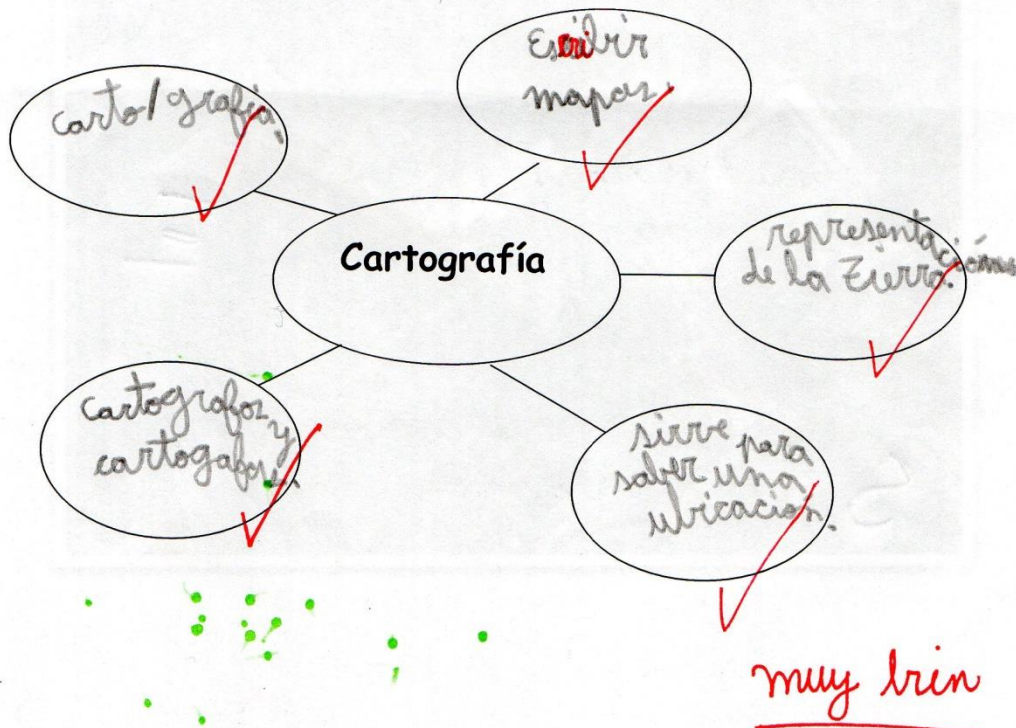 Escribir
mapas
carto/grafía.
Cartografía
representaciones
de la Tierra.
cartografos y
cartogafas.
sirve para
saber una
ubicación.
muy bien